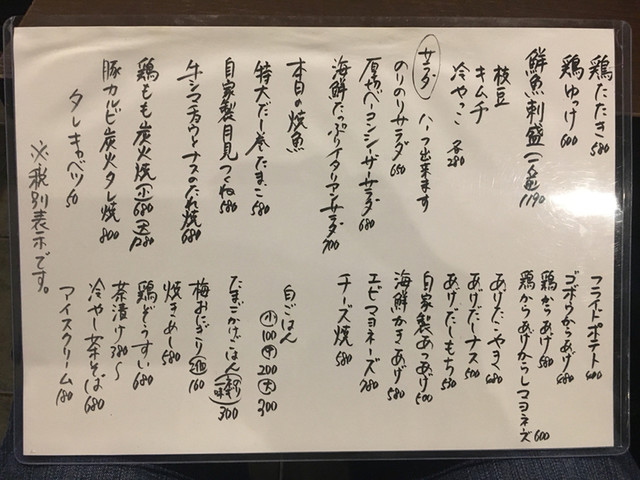 鶏たたき 580
鶏ゆっけ 600
鮮魚刺盛(一人前) 1190
枝豆
キムチ
冷やっこ 各280
サラダ ハーフ出来ます
のりのりサラダ 650
厚切ベーコンシーザーサラダ 680
海鮮たっぷりイタリアンサラダ 700
本日の焼魚
特大だし巻たまご 580
自家製月見つくね 580
牛シマチョウとナスのたれ焼 680
鶏もも炭火焼(小)680(大)1280
豚カルビ炭火タレ焼 800
タレキャベツ 50
※税別表示です。
フライドポテト 400
ゴボウからあげ 480
鶏からあげ 580
鶏からあげからしマヨネーズ 600
あげたこやき 480
あげだしナス 500
あげだしもち 530
自家製あつあげ 500
海鮮かきあげ 580
エビマヨネーズ 780
チーズ焼 580
白ごはん
小100 中200 大300
たまごかけごはん 300
梅おにぎり(1個) 160
焼きめし 580
鶏ぞうすい 680
茶漬け 380〜
冷やし茶そば 680
アイスクリーム 180